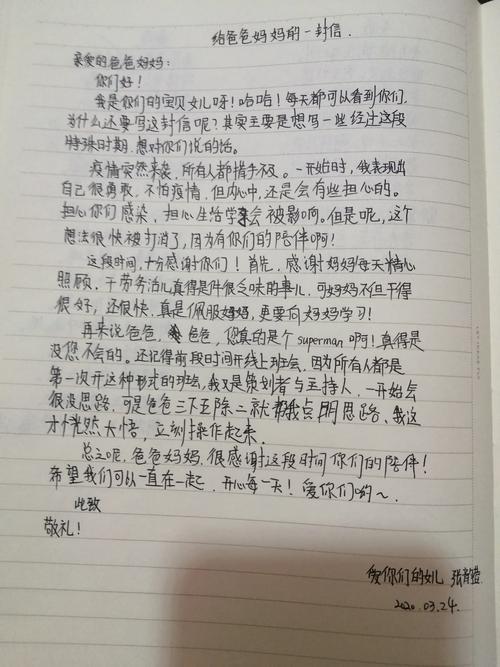 给爸爸妈妈的一封信.
亲爱的爸爸妈妈:
你们好!
我是你们的宝贝女儿呀!哈哈!每天都可以看到你们,
为什么还要写这封信呢?其实主要是想写一些经过这段
特殊时期,想对你们说的话。
疫情突然来袭,所有人都措手不及。一开始时,我表现出
自己很勇敢,不怕疫情,但内心中,还是会有些担心的。
担心你们感染,担心生活学会被影响。但是呢,这个
想法很快被打消了,因为有你们的陪伴啊!
这段时间,十分感谢你们!首先,感谢妈妈每天精心
照顾,干劳务活儿真得是件很乏味的事儿,可妈妈不但干得
很好,还很快,真是佩服妈妈,更要向妈妈学习!
再来说爸爸,爸爸,您真的是个superman啊!真得是
没您不会的。还记得前段时间开线上班会,因为所有人都是
第一次开这种形式的班会,我又是策划者与主持人,一开始会
很没思路,可是爸爸三下五除二就帮我点明思路、我这
才恍然大悟,立刻操作起来.
总之呢,爸爸妈妈,很感谢这段时间你们的陪伴!
希望我们可以一直在一起,开心每一天!爱你们哟~
此致
敬礼!
爱你们的女儿 张
2020.03.24.